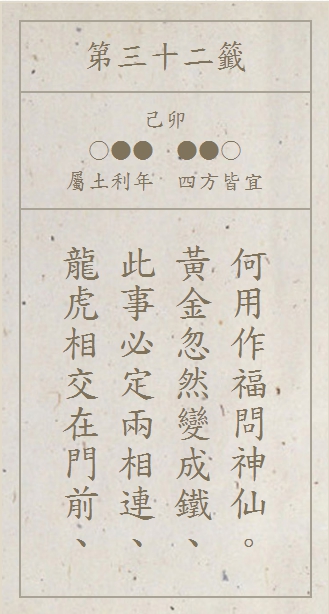 第三十二籤
己卯
○●● ●●○
屬土利年 四方皆宜
龍虎相交在門前、
此事必定兩相連、
黃金忽然變成鐵、
何用作福問神仙。